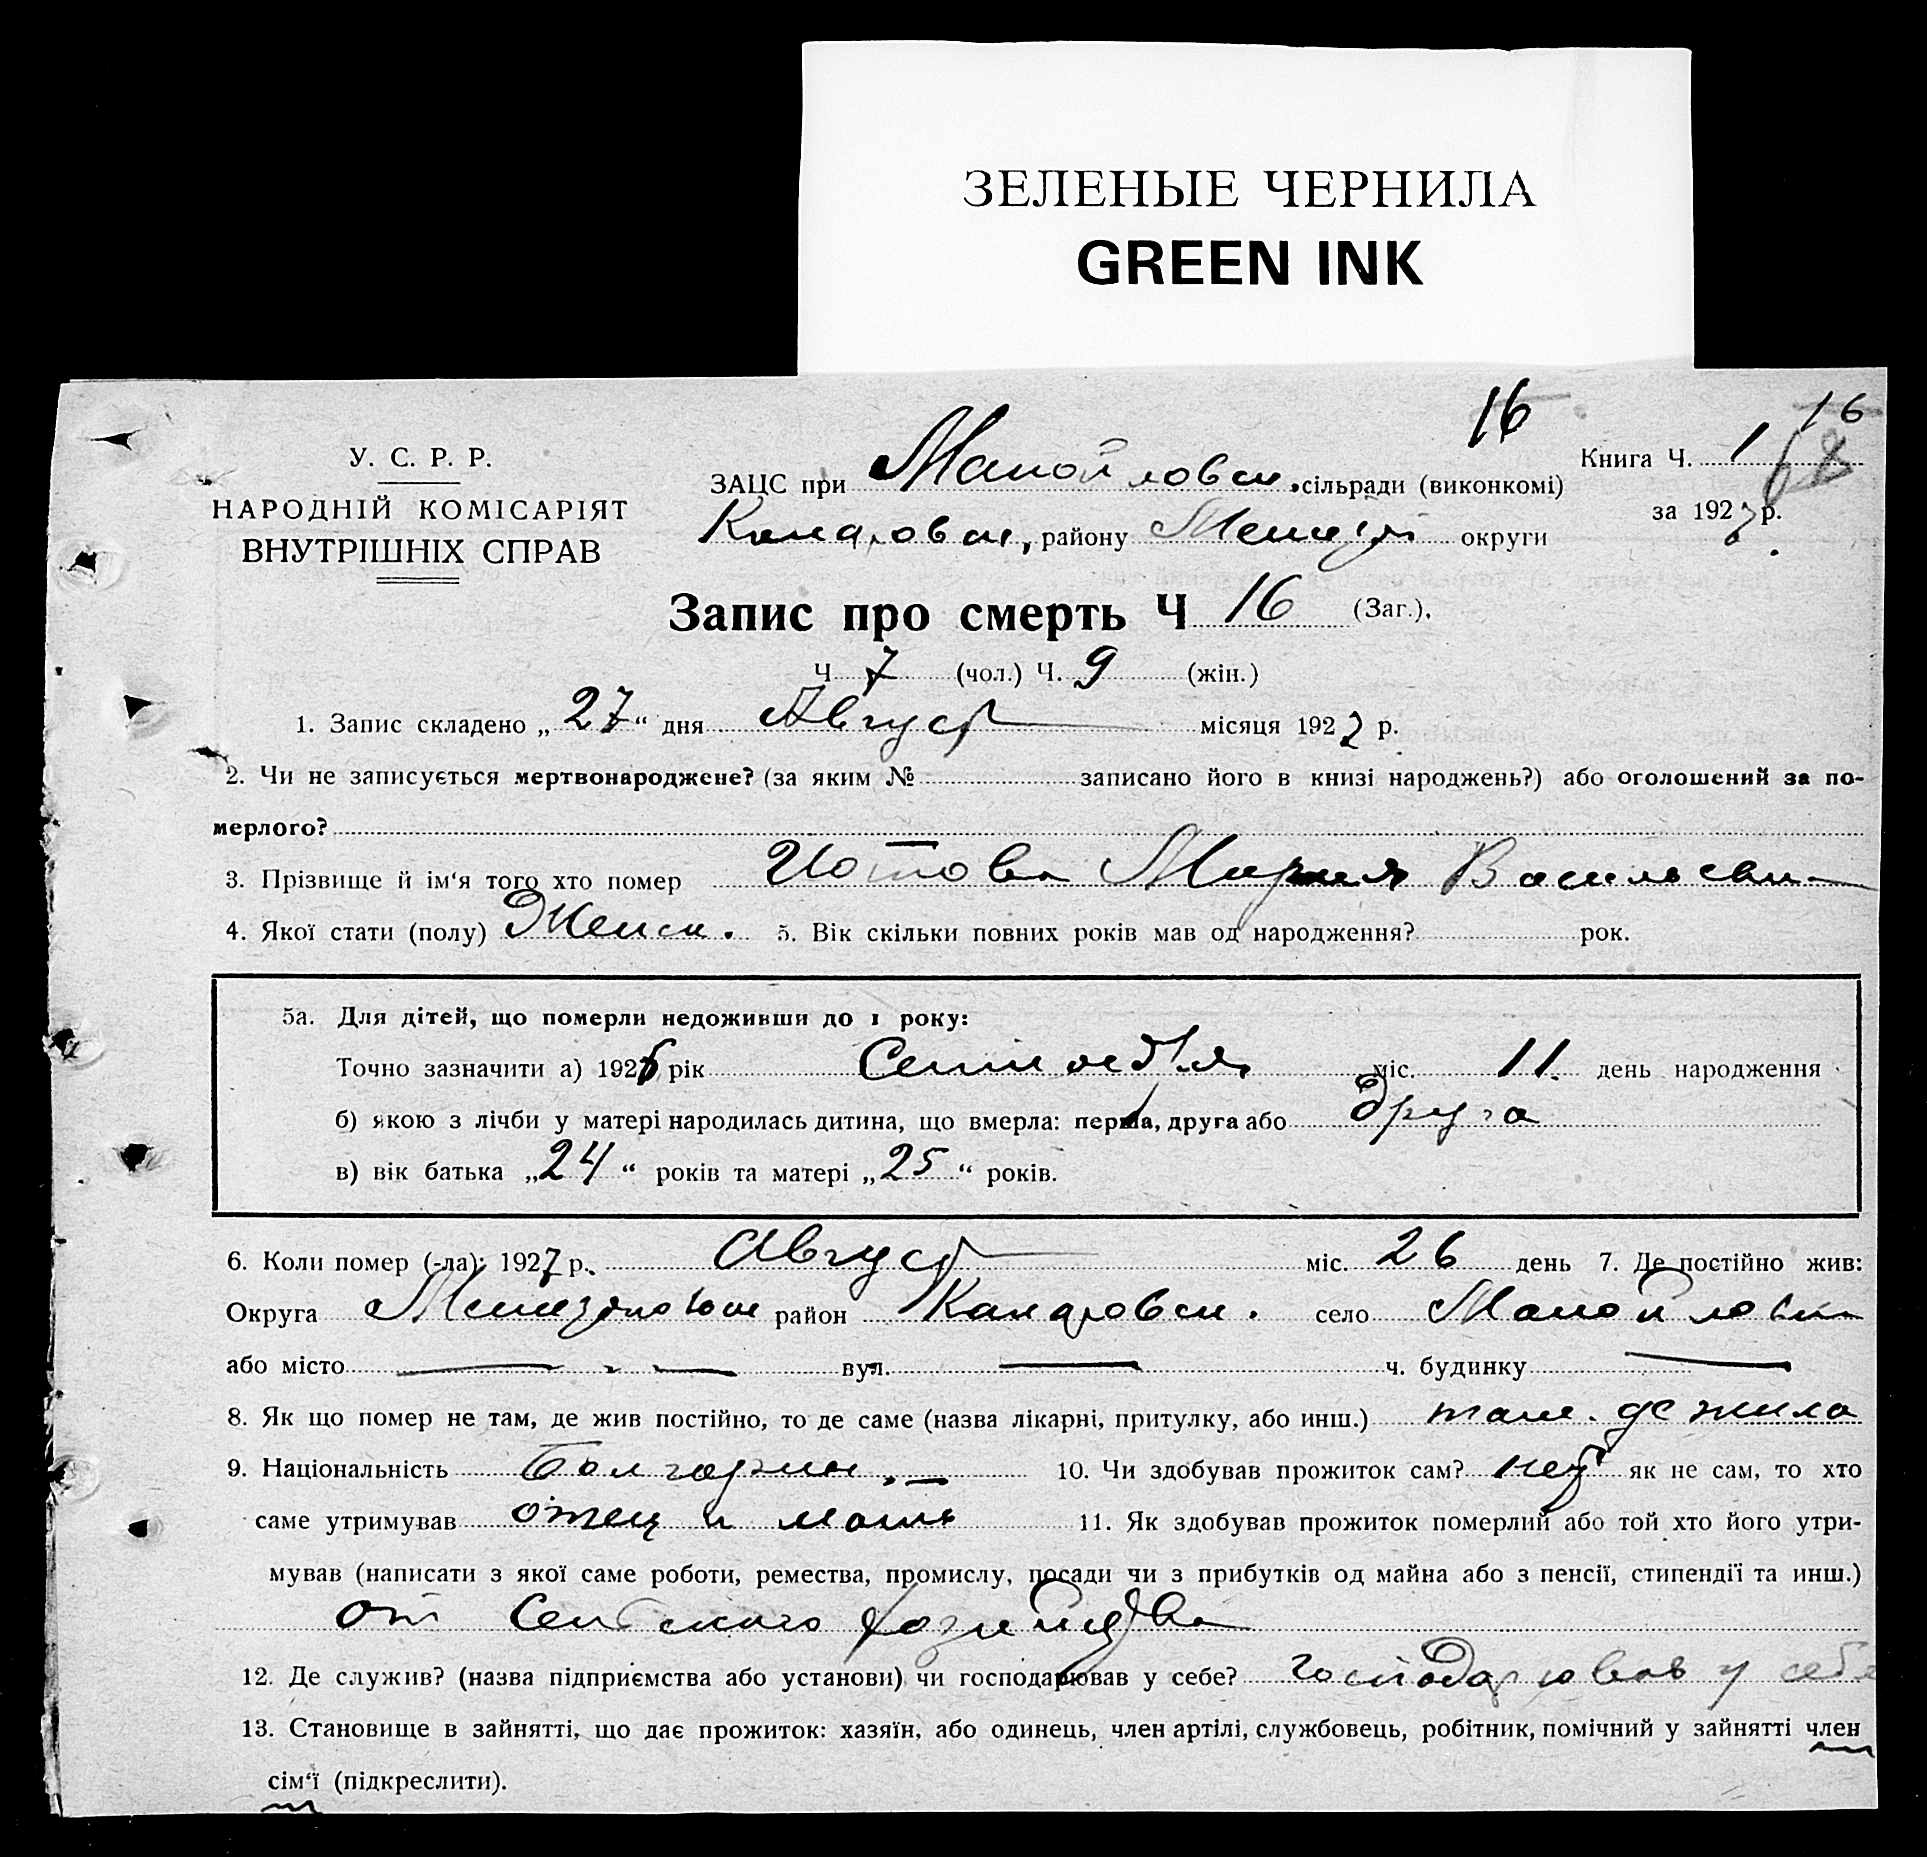 ЗЕЛЕНЫЕ ЧЕРНИЛА
GREEN INK
16 16
У. С. Р. Р.
НАРОДНІЙ КОМІСАРІЯТ
ВНУТРІШНІХ СПРАВ
Книга Ч. 1
68
за 1927 р.
ЗАЦС при Манойловск. сільради (виконкомі)
района району округи
Запис про смерть Ч 16 (Заг.),
Ч 7 (чол.) Ч. 9 (жін.)
1. Запис складено „27“ дня Август місяця 1927 р.
2. Чи не записується мертвонароджене? (за яким № записано його в книзі народжень?) або оголошений за по-
мерлого?
3. Прізвище й ім‘я того хто помер Иотова Мария Васильевна
4. Якої стати (полу) Женск. 5. Вік скільки повних років мав од народження? рок.
5а. Для дітей, що померли недоживши до 1 року:
Точно зазначити а) 1926 рік Сентября міс. 11. день народження
б) якою з лічби у матері народилась дитина, що вмерла: перша, друга або друга
в) вік батька „24“ років та матері „25“ років.
6. Коли помер (-ла): 1927 р. Август міс. 26 день 7. Де постійно жив:
Округа район село Манойловка
або місто — вул. — ч. будинку —
8. Як що помер не там, де жив постійно, то де саме (назва лікарні, притулку, або инш.) там. де жила
9. Національність Болгарин. — 10. Чи здобував прожиток сам? нет як не сам, то хто
саме утримував отец и мать 11. Як здобував прожиток померлий або той хто його утри-
мував (написати з якої саме роботи, ремества, промислу, посади чи з прибутків од майна або з пенсії, стипендії та инш.)
от Сельского хозяйства
12. Де служив? (назва підприємства або установи) чи господарював у себе? господарював у себе
13. Становище в зайнятті, що дає прожиток: хазяїн, або одинець, член артілі, службовець, робітник, помічний у зайнятті член
сім‘ї (підкреслити).